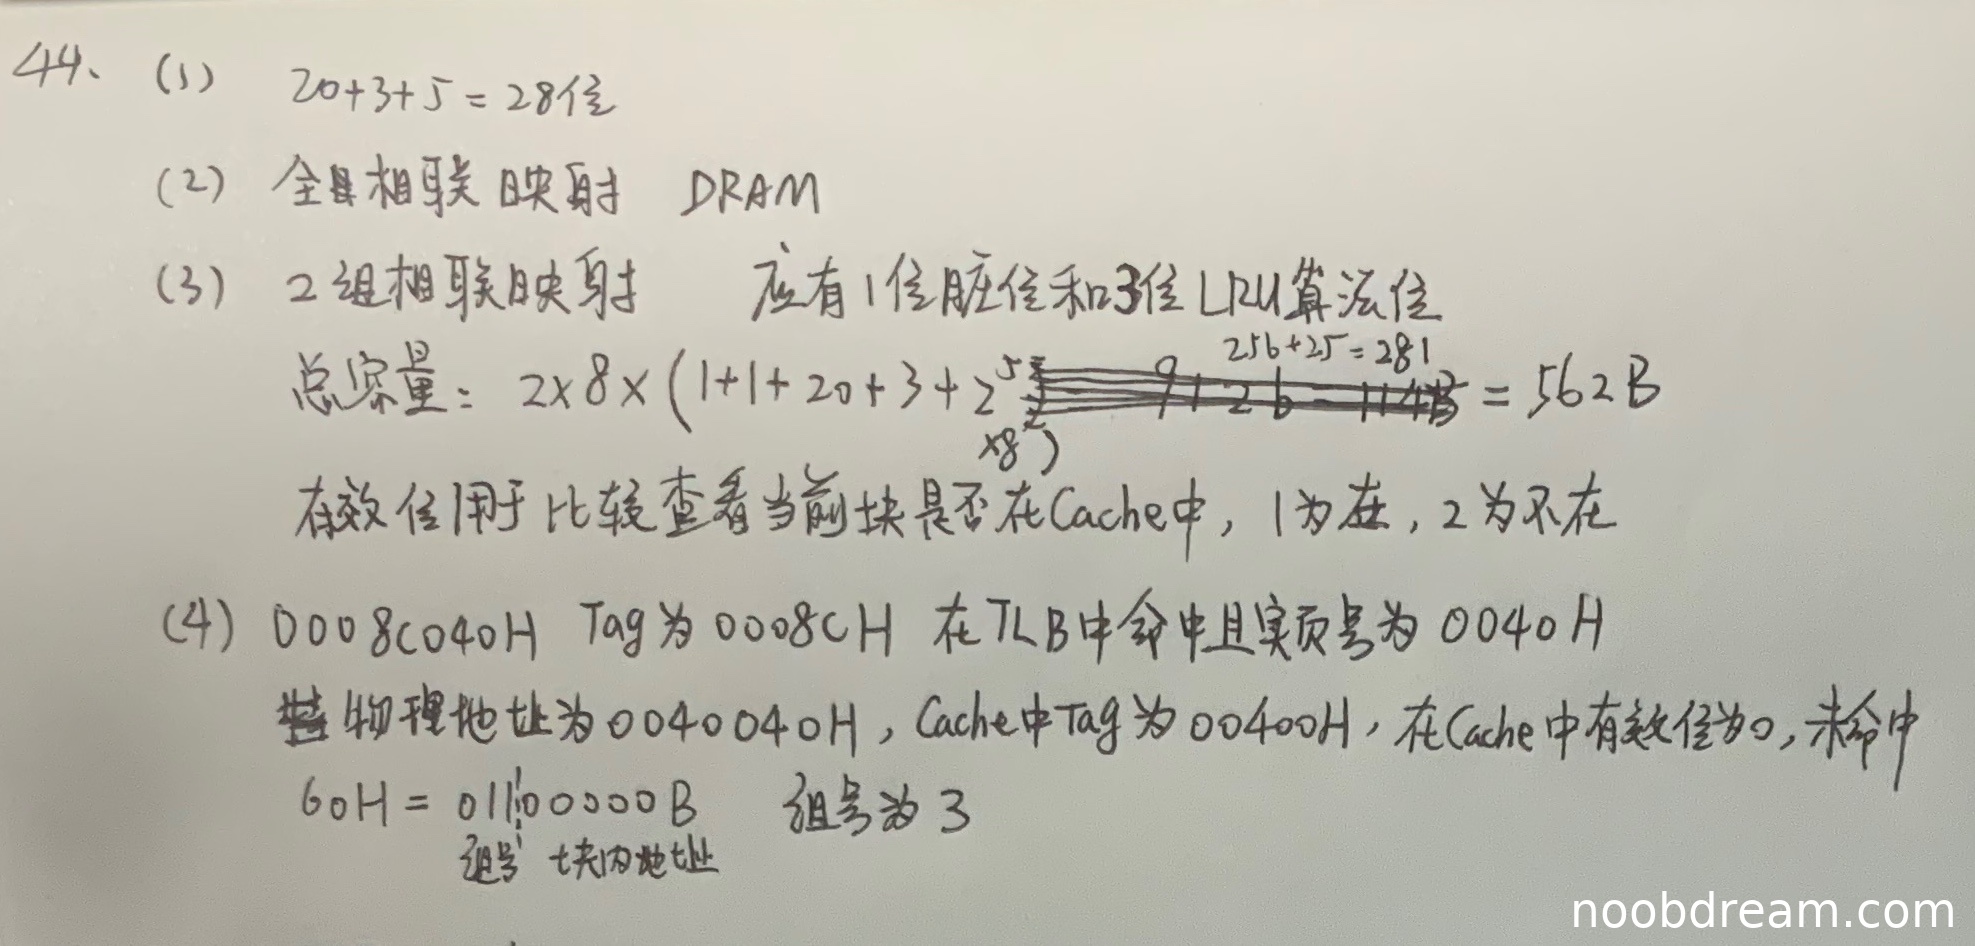 44、 (1) 20+3+5=28位
(2) 全相联映射 DRAM
(3) 2组相联映射 应有1位脏位和3位LRU算法位
256+25=281
总容量: 2×8×(1+1+20+3+2⁵ = 562B
×8)
有效位用于比较查看当前块是否在Cache中, 1为在, 2为不在
(4) 0008C040H Tag为0008CH 在TLB中命中且实页号为0040H
物理地址为0040040H, Cache中Tag为00400H, 在Cache中有效位为0, 未命中
60H = 01100000B 组号为3
组号 块内地址
noobdream.com